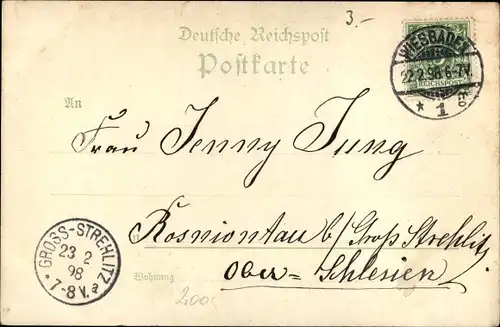 3.-
Deutsche Reichspost
Postkarte
WIESBADEN
22.2.98.6-7V.
* 1
REICHSPOST
An
Frau Jenny Jung
Rosniontau b/ Groß Strehlitz
Ober=Schlesien
Wohnung
GROSS-STREHLITZ
23 2
98
* 7-8 V. a
200